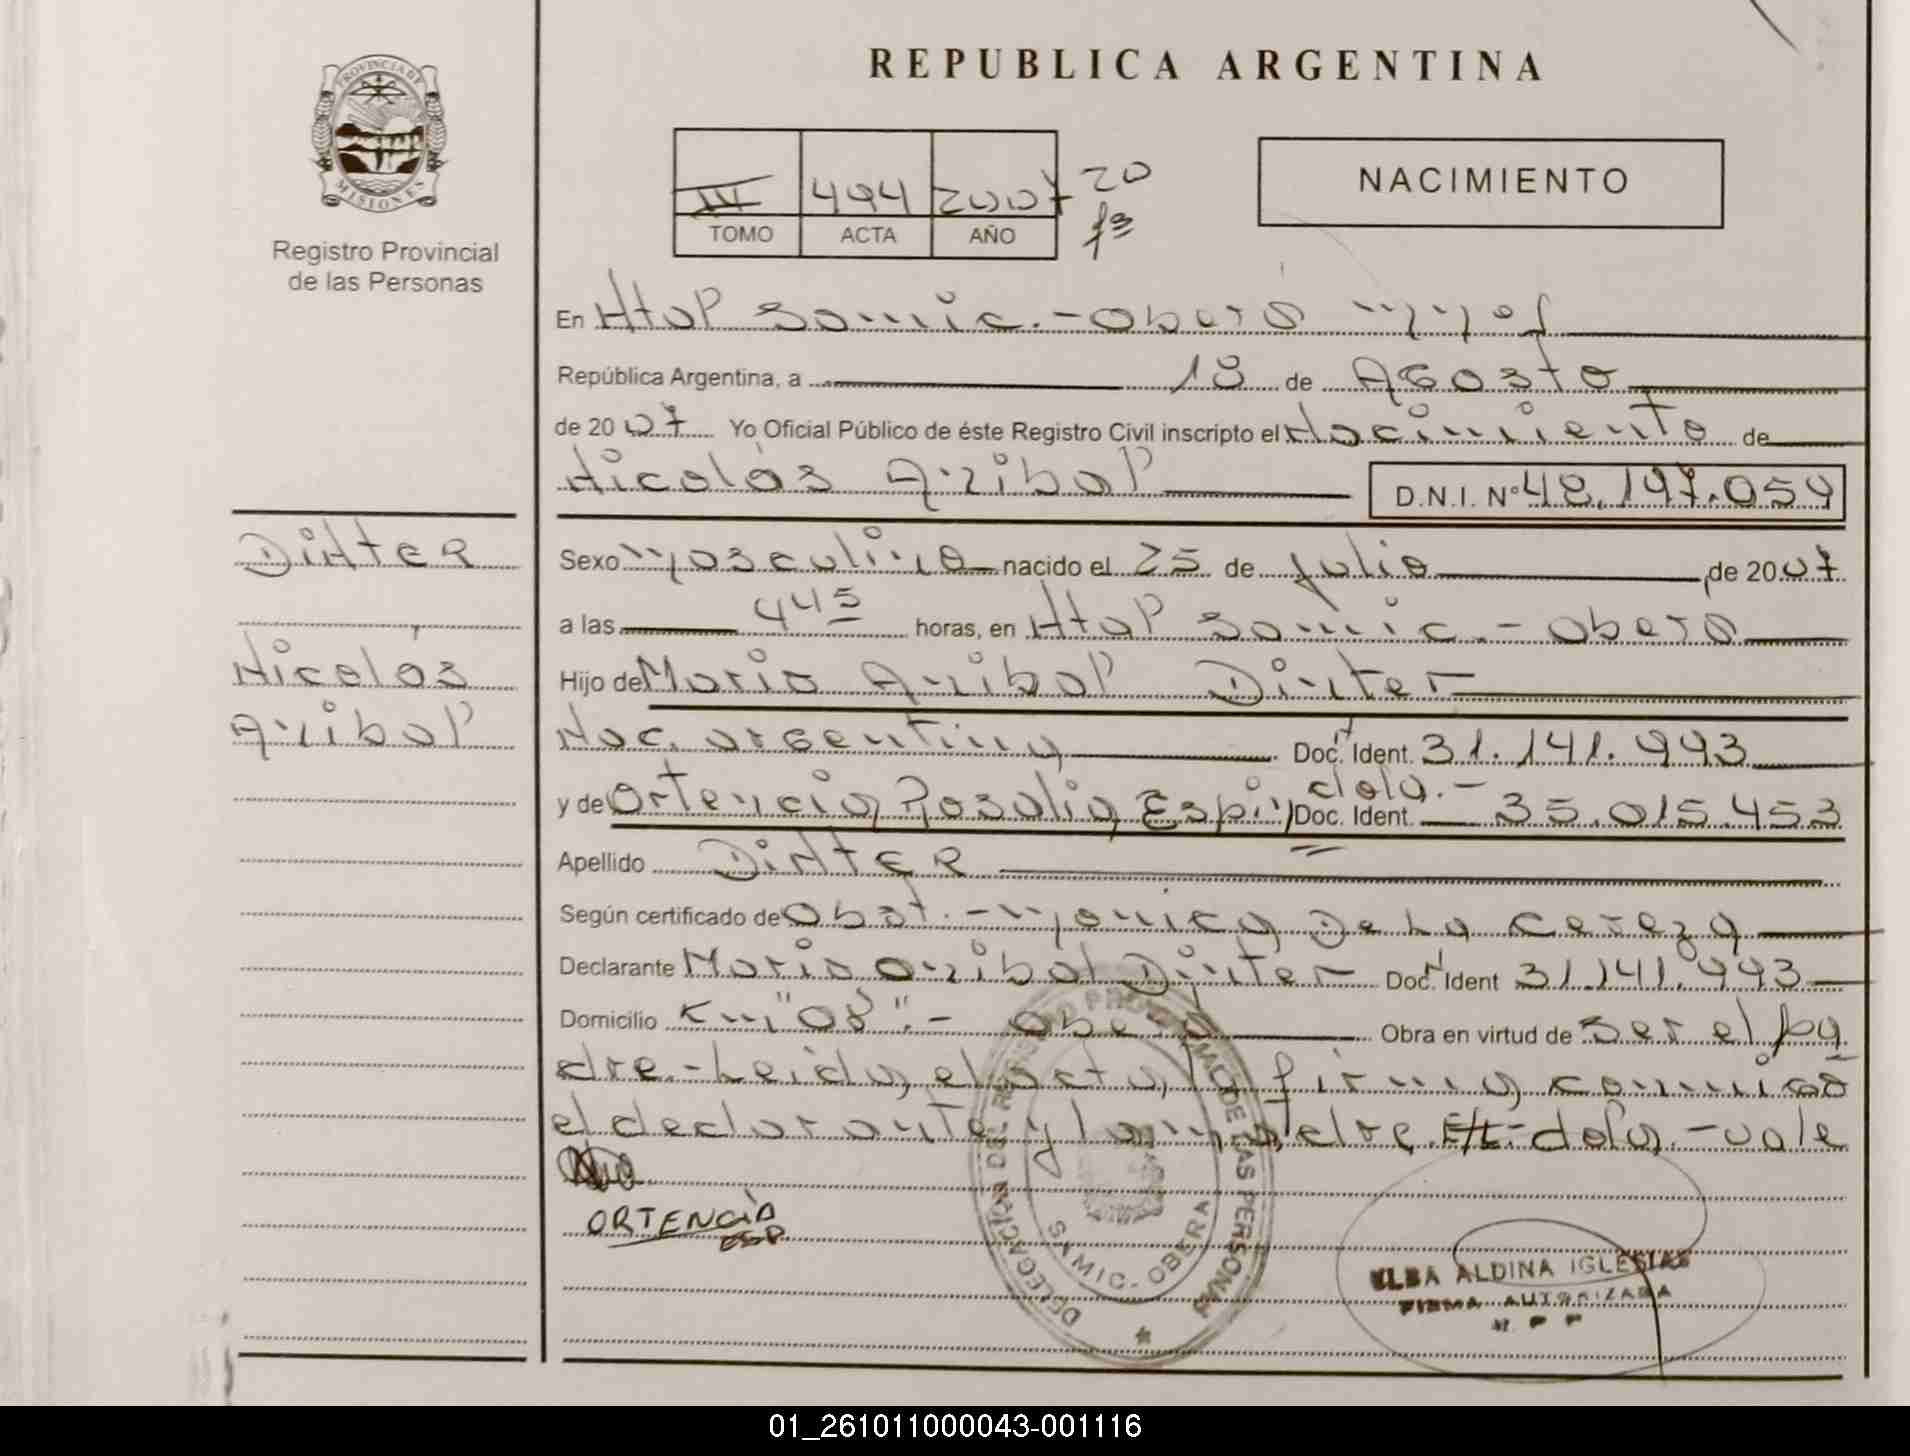 PROVINCIA DE
MISIONES
Registro Provincial
de las Personas
REPUBLICA ARGENTINA
III 494 2007 20
TOMO ACTA AÑO
NACIMIENTO
En Htal Samic.-Oberá
República Argentina, a 18 de Agosto
de 20 07 Yo Oficial Público de éste Registro Civil inscripto el Nacimiento de
Nicolás Anibal D.N.I. Nº 48.197.059
Dinter
Nicolás
Anibal
Sexo Masculino nacido el 25 de Julio de 20 07
a las 4 45 horas, en Htal Samic.-Obera
Hijo de Mario Anibal Dinter
Nac. argentina Doc. Ident. 31.141.993
y de Ortencia Rosalia Espin dola.- Doc. Ident. 35.015.453
Apellido DiNter
Según certificado de Obst.-Monica De La Cereza
Declarante Mario Anibal Dinter Doc. Ident 31.141.993
Domicilio Km "08".- Obera Obra en virtud de ser el pa
dre.-Leida el acta, la firma conmigo
el declarante y la madre E/L-dola.-vale
ORTENCIA
ESP
DELEGACION DEL REGISTRO PROVINCIAL DE LAS PERSONAS
SAMIC-OBERA
ELBA ALDINA IGLESIAS
FIRMA AUTORIZADA
R P P
01_261011000043-001116